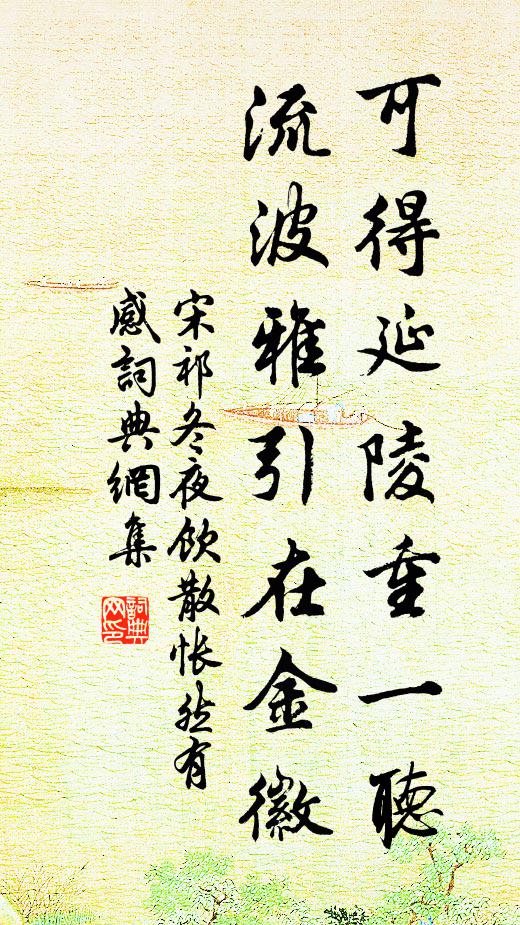 可得延陵重一聽
流波雅引在金徽
宋祁冬夜飲散悵然有
感詞典網集
詞典
网印